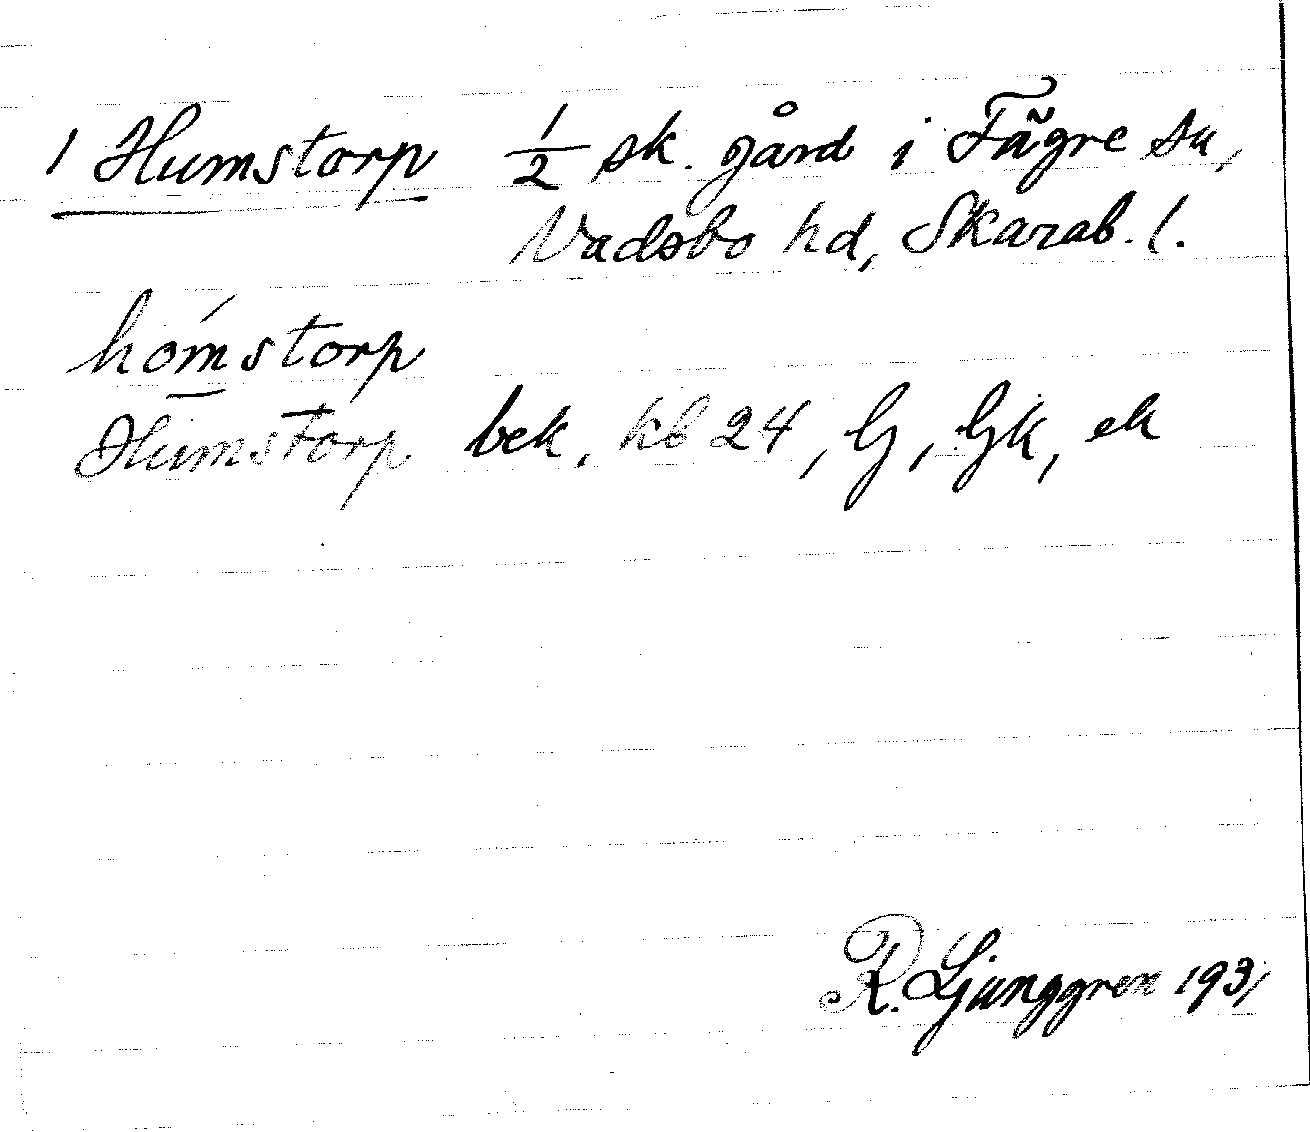 1 Humstorp ½ sk. gård i Fägre sn,
Vadsbo hd, Skarab. l.
hómstorp
Humstorp bek. kb 24, G, Gk, ek
R. Ljunggren 1931